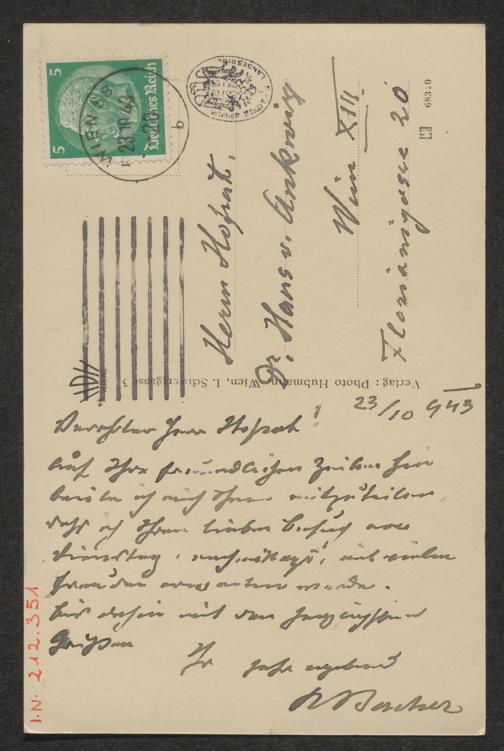 5 5
Deutsches Reich
WIEN
23.10.43
WIENER STADT
LANDESBIBL
68340
Herrn Hofrat.
Dr. Hans v. Ankwicz
Wien XIII
Florianigasse 20
Verlag: Photo Hubmann, Wien, I. Schwertgasse 3
23/10 943
Verehrter Herr Hofrat!
Auf Ihre freundlichen Zeilen hin
beeile ich mich Ihnen mitzuteilen,
daß ich Ihren lieben Besuch am
Dienstag, nachmittags, mit vielen
Freuden erwarten werde.
Bis dahin mit den herzlichsten
Grüßen
Ihr sehr ergebener
I.N. 212.351